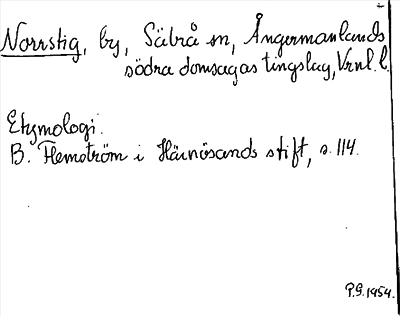 Norrstig, by, Säbrå sn, Ångermanlands
södra domsagas tingslag, Vrnl. l.
Etymologi.
B. Flemström i Härnösands stift, s. 114.
P.G. 1954.